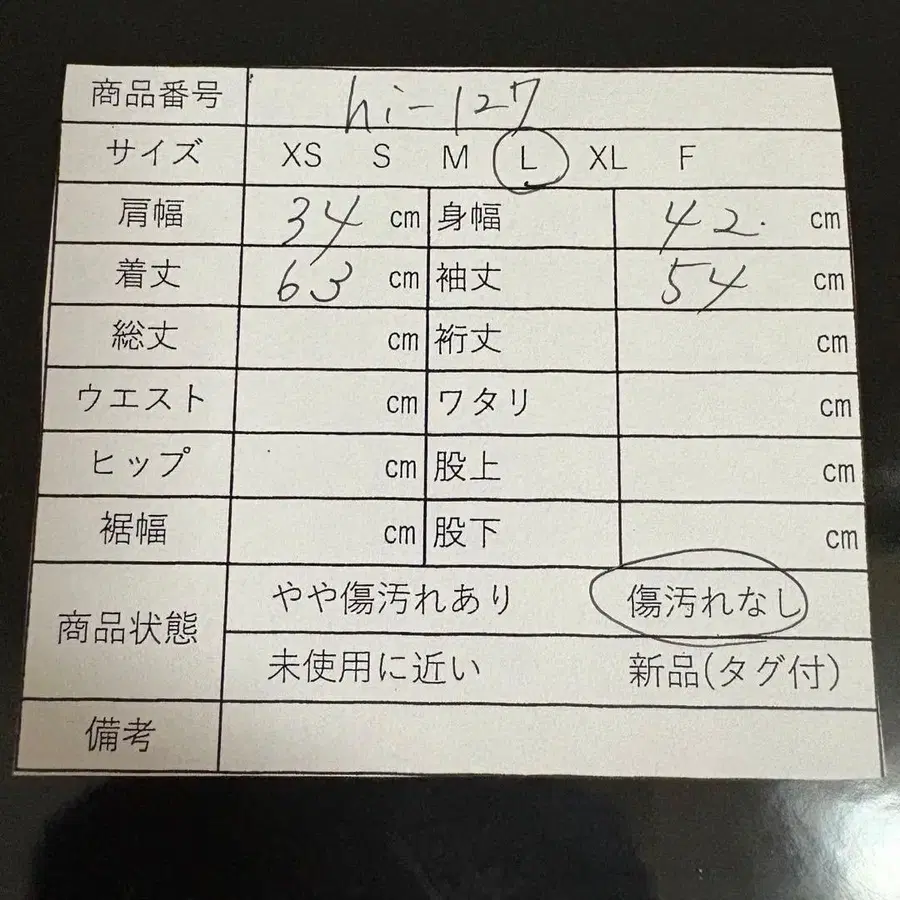 商品番号 hi-127
サイズ XS S M L XL F
肩幅 34 cm 身幅 42. cm
着丈 63 cm 袖丈 54 cm
総丈 cm 裄丈 cm
ウエスト cm ワタリ cm
ヒップ cm 股上 cm
裾幅 cm 股下 cm
商品状態 やや傷汚れあり 傷汚れなし
未使用に近い 新品(タグ付)
備考